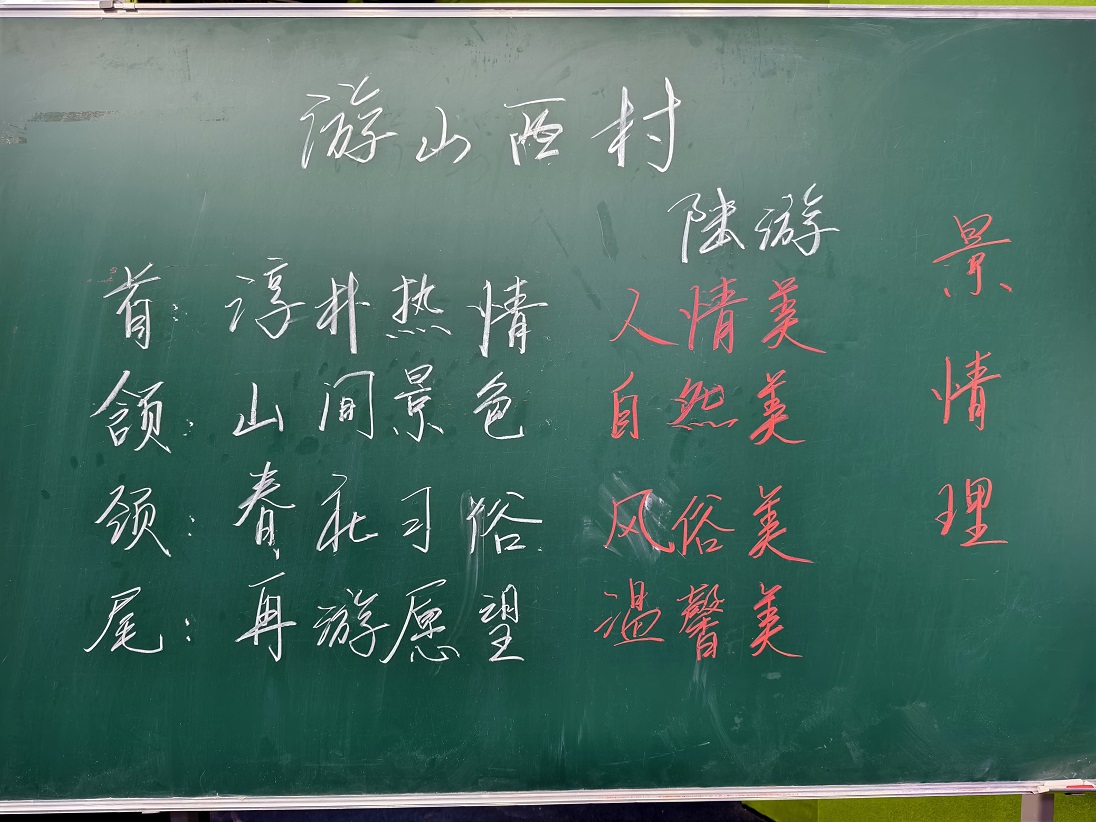 游山西村
陆游
首:淳朴热情 人情美
颔:山间景色 自然美
颈:春社习俗 风俗美
尾:再游愿望 温馨美
景
情
理